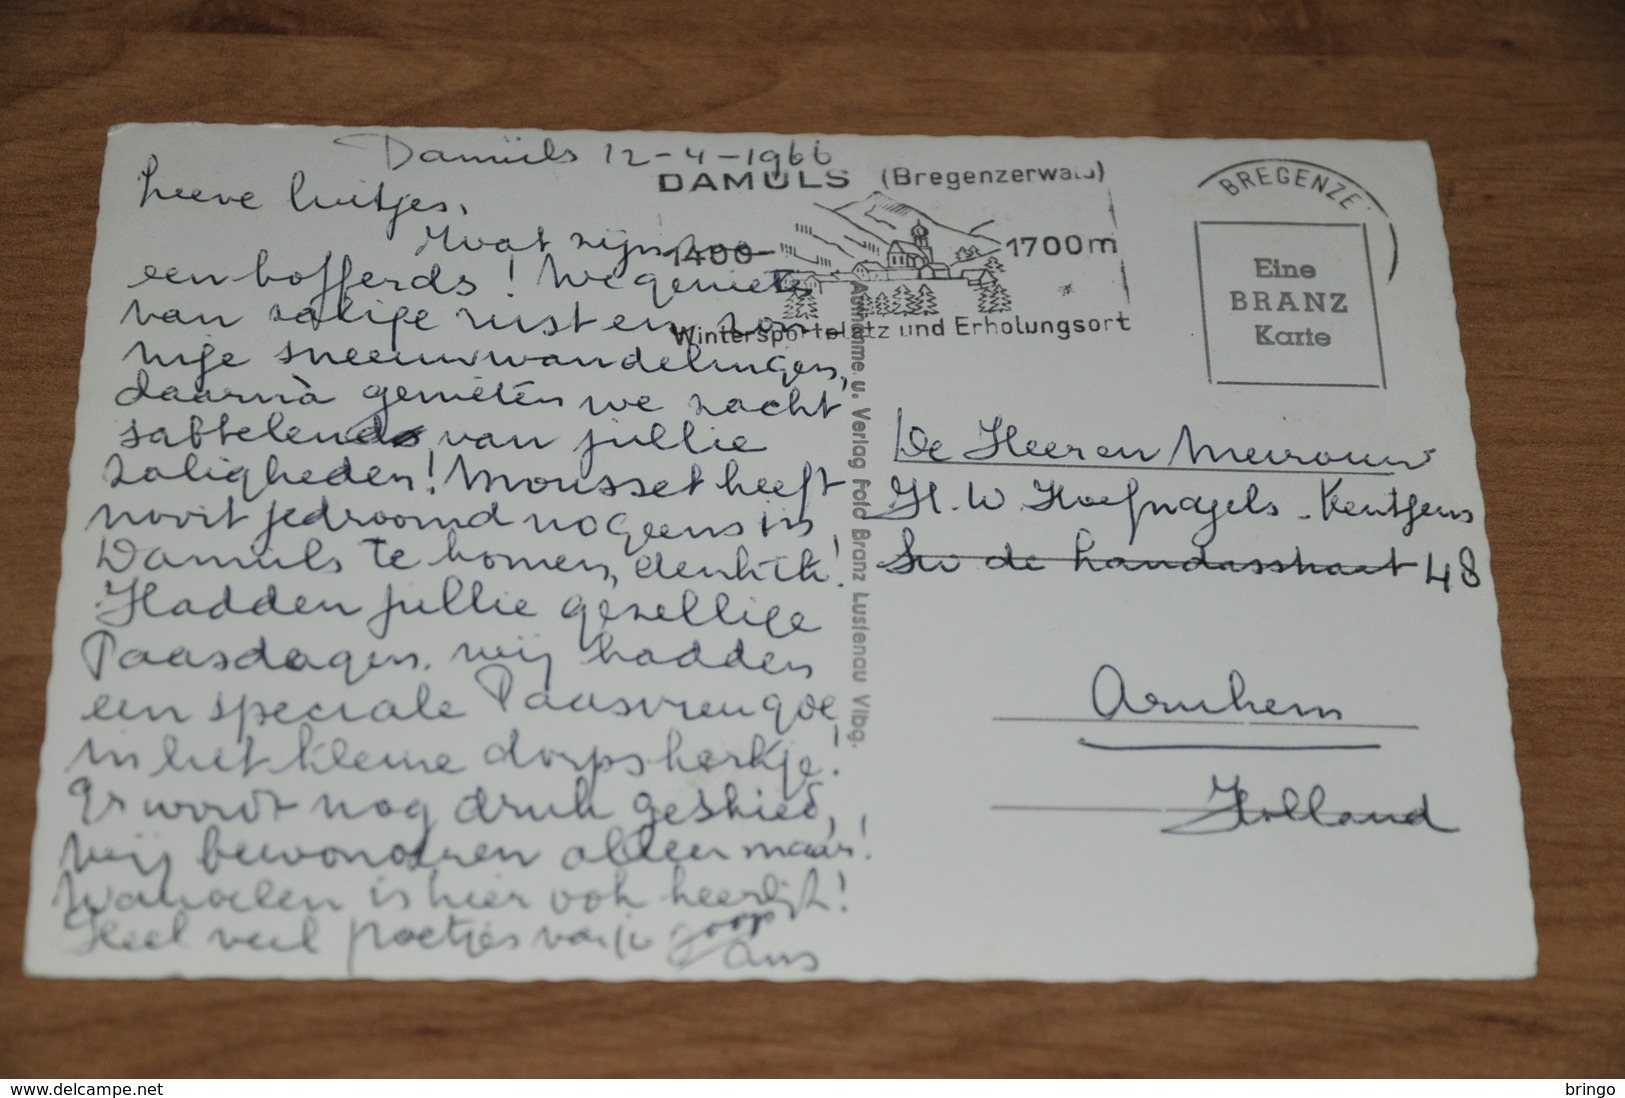 Damüls 12-4-1966
Lieve luitjes,
Wat zijn we
een bofferds! We genieten
van zalige rust en zon-
nige sneeuwwandelingen,
daarnà geniéten we zacht
sabbelend, van jullie
zaligheden! Mousset heeft
nooit gedroomd nog eens in
Damüls te komen, denk ik!
Hadden jullie gezellige
Paasdagen. wij hadden
een speciale Paasvreugde
in het kleine dorpskerkje!
Er wordt nog druk geskied,
wij bewonderen alleen maar!
Wandelen is hier ook heerlijk!
Heel veel poetjes van je Joop
Ans
DAMÜLS (Bregenzerwald)
1400- 1700m
Wintersportplatz und Erholungsort
BREGENZE
Eine
BRANZ
Karte
Aufnahme u. Verlag Foto Branz Lustenau Vlbg.
De Heer en Mevrouw
H. W Hoefnagels - Kentgens
48
Arnhem
Holland
www.delcampe.net
bringo